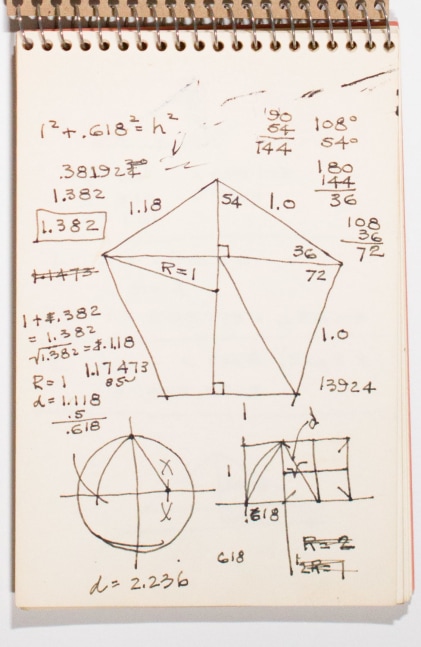 1² + .618² = h²
.381924
1.382
1.382
1.1473
1+.382
= 1.382
√1.382 = 1.118
1.17473
85
R = 1
d = 1.118
.5
.618
90
54
144
108°
54°
180
144
36
108
36
72
1.18
54
1.0
36
72
R=1
1.0
13924
X
X
d = 2.236
1
d
1
.618
618
R = 2
½R = 1